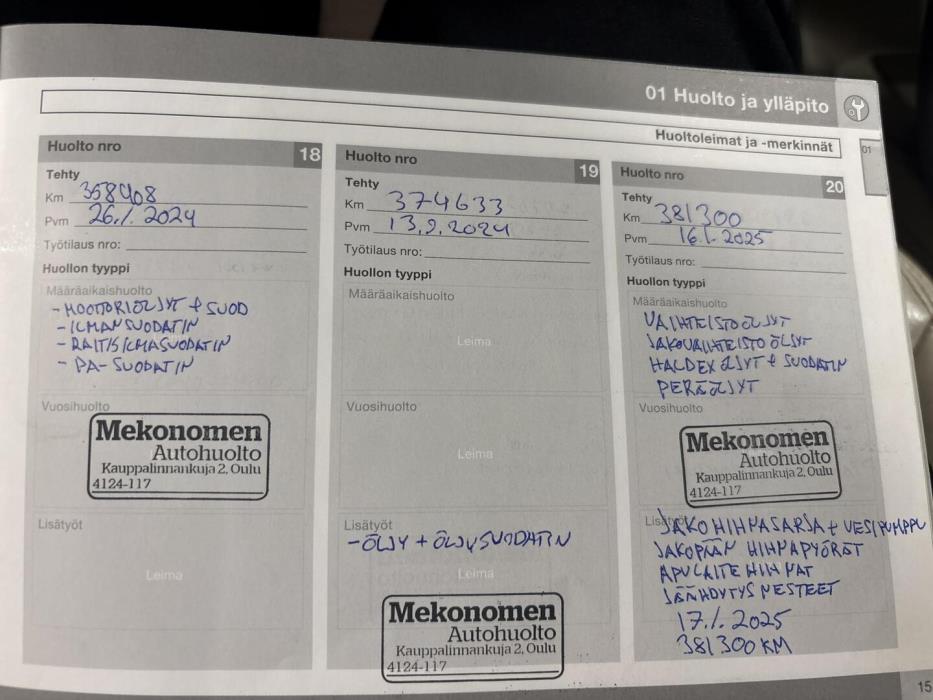 01 Huolto ja ylläpito
Huoltoleimat ja -merkinnät
01
Huolto nro 18
Tehty
Km 358408
Pvm 26.1. 2024
Työtilaus nro:
Huollon tyyppi
Määräaikaishuolto
- MOOTTORIÖLJYT + SUOD
- ILMANSUODATIN
- RAITISILMASUODATIN
- PA-SUODATIN
Vuosihuolto
Mekonomen
Autohuolto
Kauppalinnankuja 2, Oulu
4124-117
Lisätyöt
Leima
Huolto nro 19
Tehty
Km 374633
Pvm 13.9.2024
Työtilaus nro:
Huollon tyyppi
Määräaikaishuolto
Leima
Vuosihuolto
Leima
Lisätyöt
- ÖLJY + ÖLJYSUODATIN
Leima
Mekonomen
Autohuolto
Kauppalinnankuja 2, Oulu
4124-117
Huolto nro 20
Tehty
Km 381300
Pvm 16.1. 2025
Työtilaus nro:
Huollon tyyppi
Määräaikaishuolto
VAIHTEISTOÖLJYT
JAKOVAIHTEISTOÖLJYT
HALDEX ÖLJYT + SUODATIN
PERÄÖLJYT
Vuosihuolto
Mekonomen
Autohuolto
Kauppalinnankuja 2, Oulu
4124-117
Lisätyöt
JAKOHIHNASARJA + VESIPUMPPU
JAKOPÄÄN HIHNAPYÖRÄT
APULAITEHIHNAT
JÄÄHDYTYSNESTEET
17.1. 2025
381300 KM
15